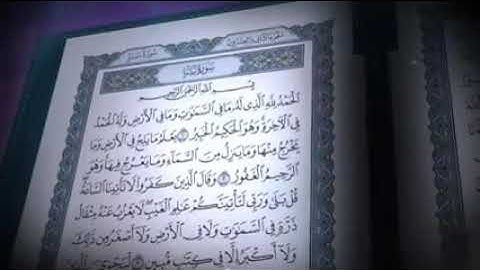 الجزء الثاني والعشرون
سورة سبأ
سورة سبأ
بسم الله الرحمن الرحيم
الحمد لله الذي له ما في السموت وما في الأرض وله الحمد
في الآخرة وهو الحكيم الخبير ١ يعلم ما يلج في الأرض وما
يخرج منها وما ينزل من السماء وما يعرج فيها وهو
الرحيم الغفور ٢ وقال الذين كفروا لا تأتينا الساعة
قل بلى وربي لتأتينكم علم الغيب لا يعزب عنه مثقال
ذرة في السموت ولا في الأرض ولا أصغر من ذلك
ولا أكبر إلا في كتب مبين ٣ ليجزي الذين